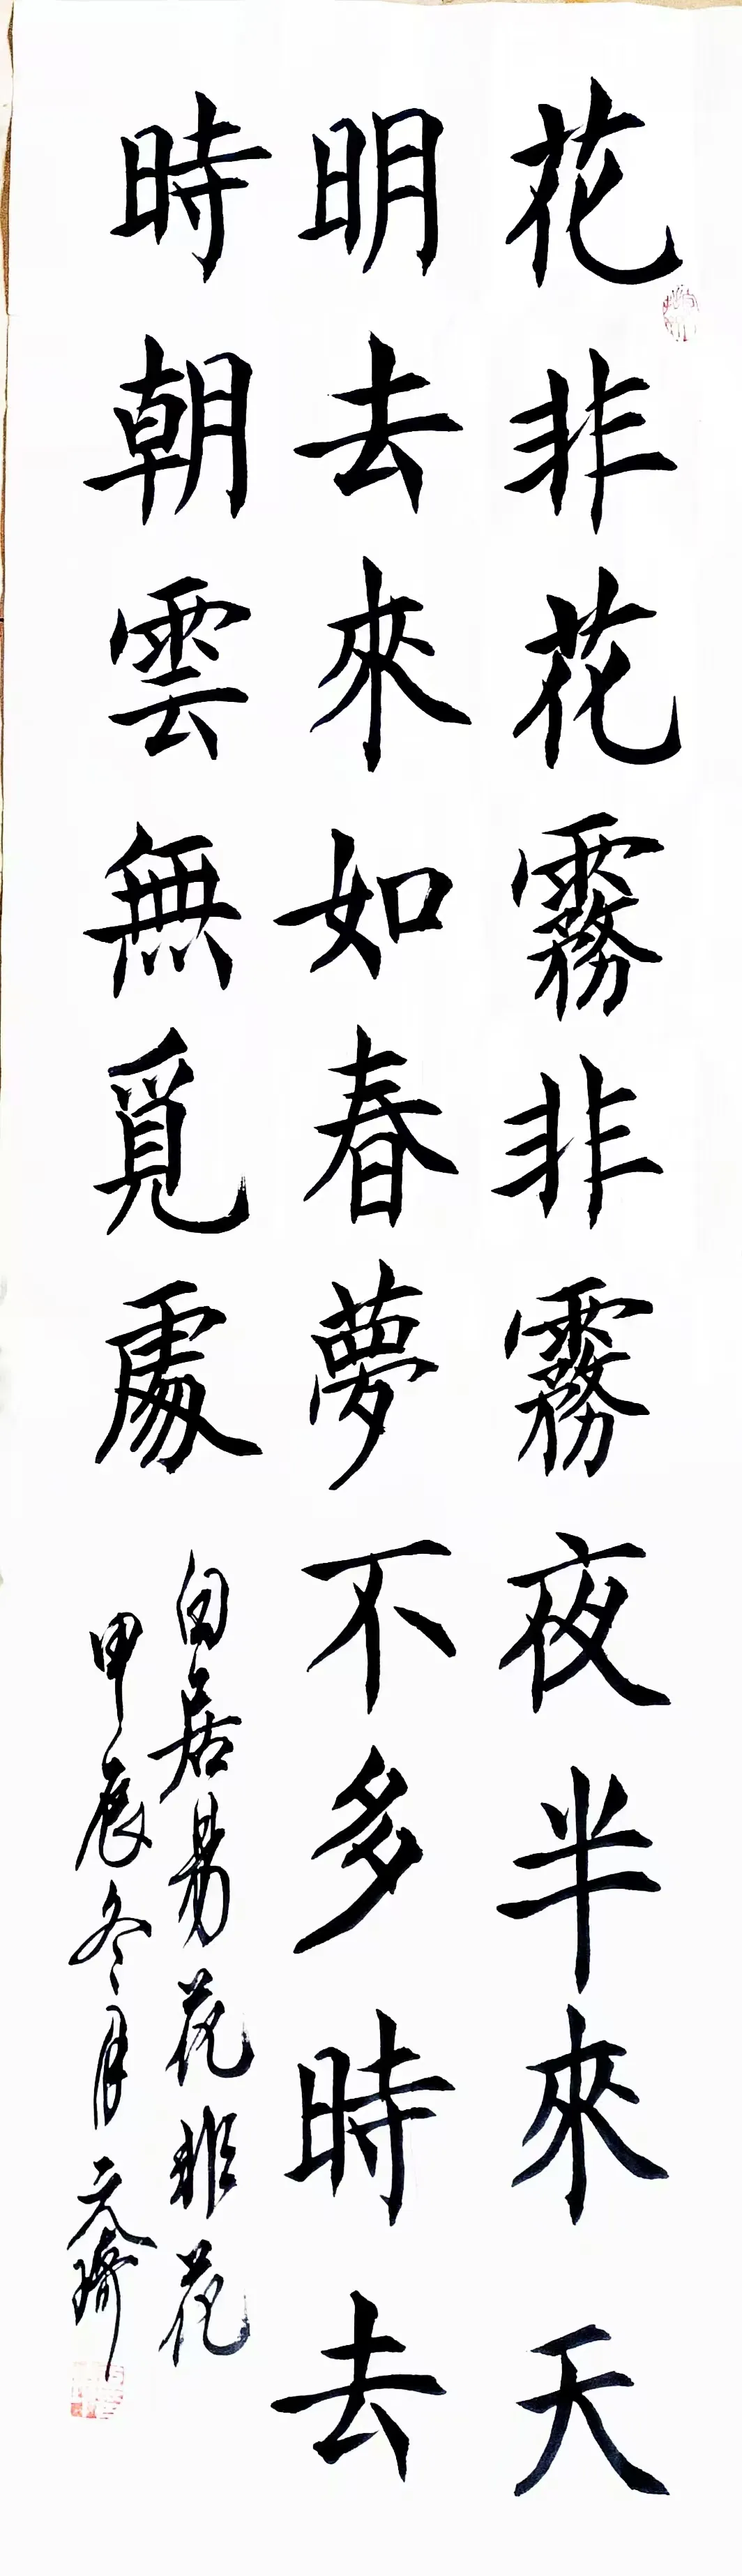 花非花霧非霧夜半來天
明去來如春夢不多時去
時朝雲無覓處
白居易花非花
甲辰冬月